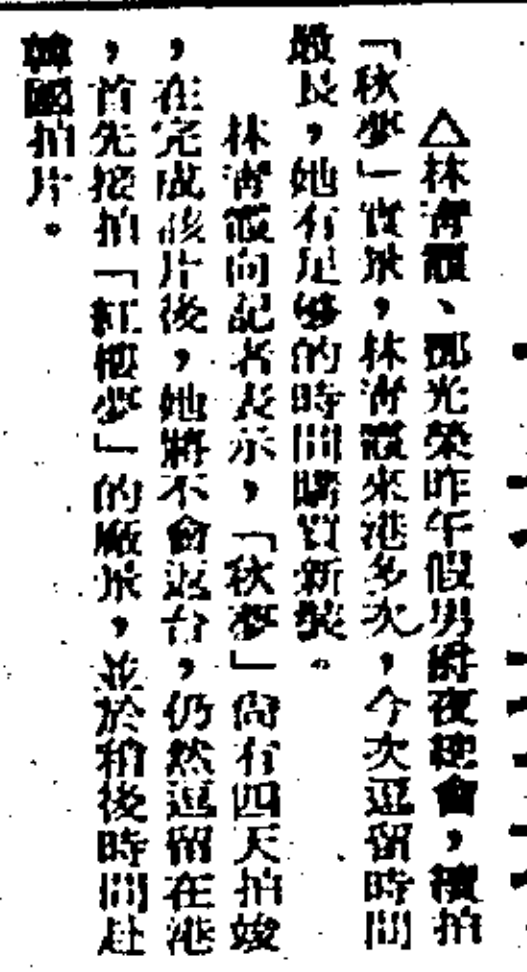 △林青霞、鄧光榮昨午假男爵夜總會，續拍
「秋夢」實景，林青霞來港多次，今次逗留時間
最長，她有足够的時間購買新裝。
林青霞向記者表示，「秋夢」尚有四天拍竣
，在完成該片後，她將不會返台，仍然逗留在港
，首先接拍「紅樓夢」的廠景，並於稍後時間赴
韓國拍片。